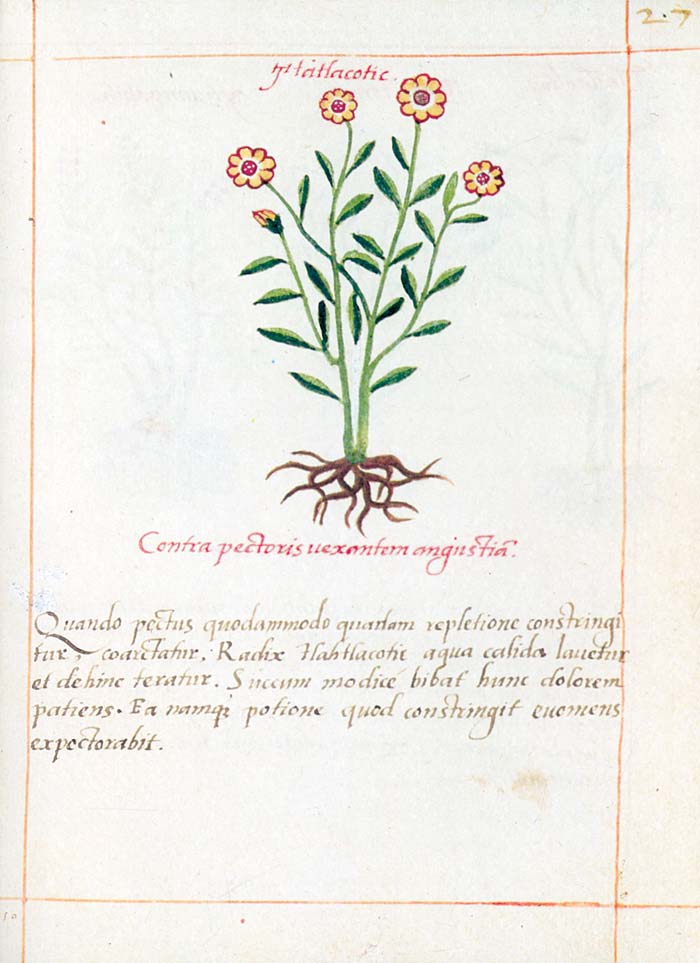 27
Tlatlacotic.
Contra pectoris uexantem angustiã.
Quando pectus quodammodo quadam repletione constringi
tur, coarctatur, Radix Tlahtlacotic aqua calida lauetur
et dehinc teratur. Succum modice bibat hunc dolorem
patiens. Ea namqꝫ potione quod constringit euomens
expectorabit.